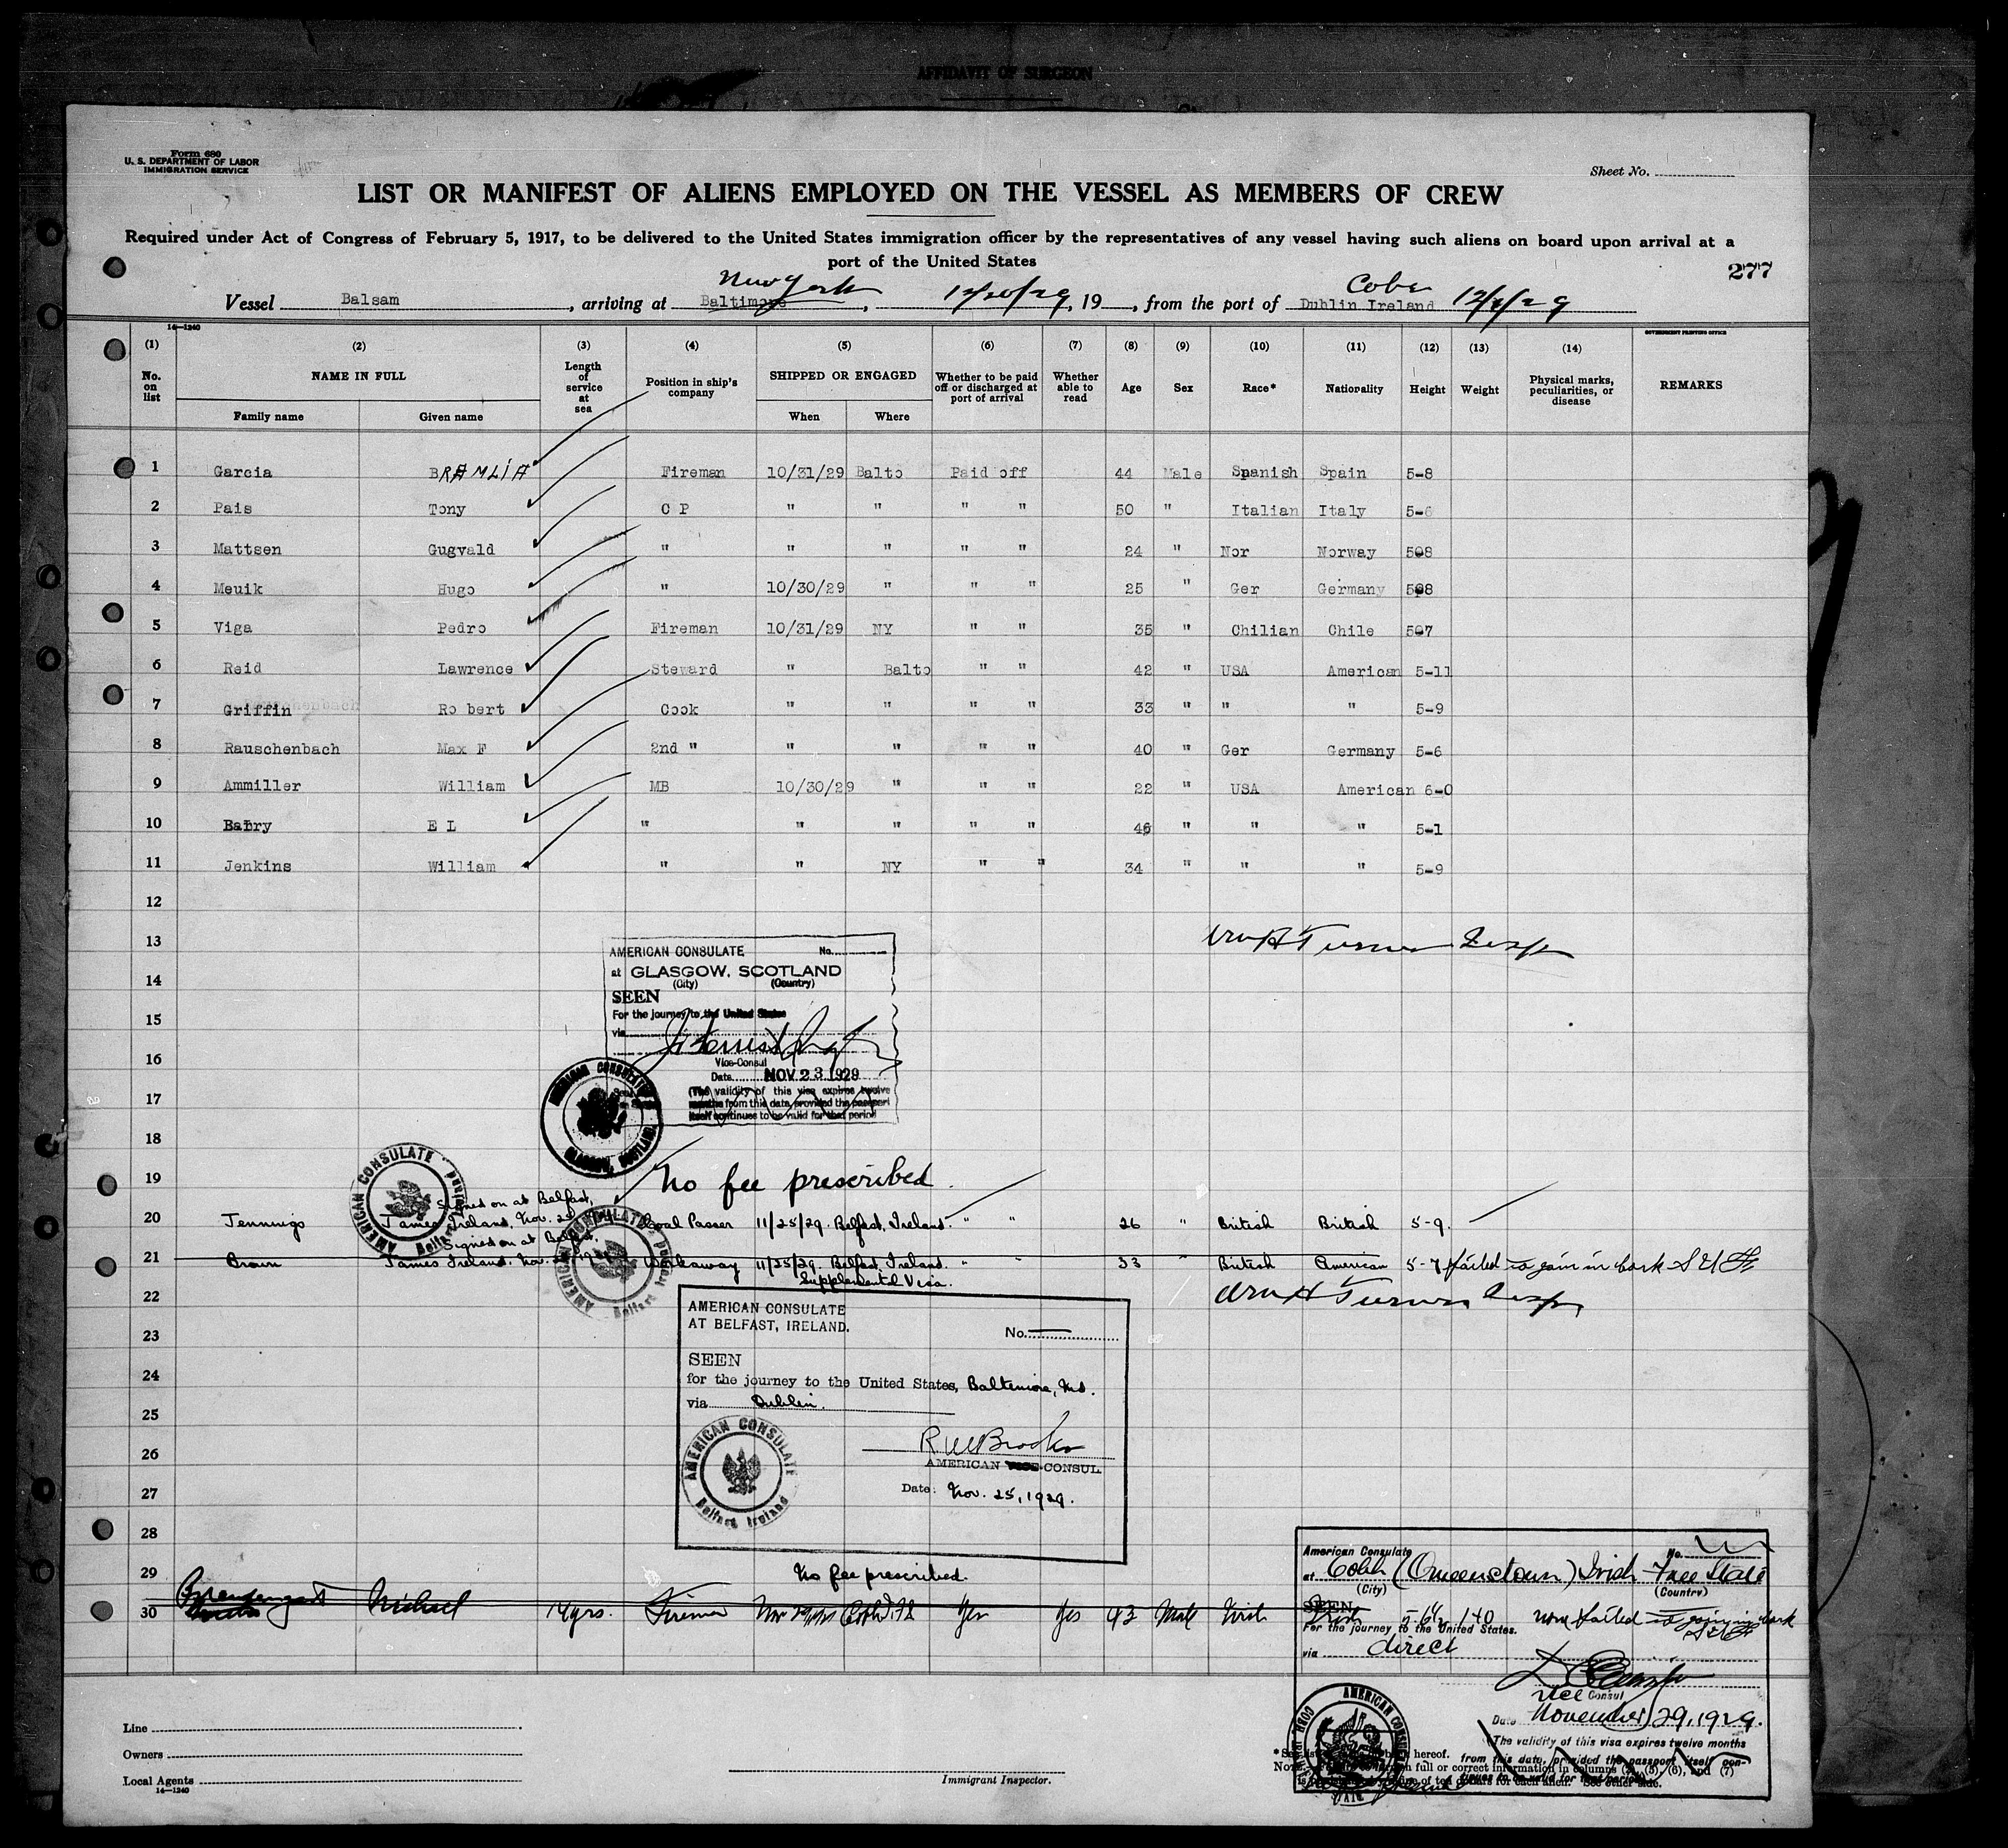 AFFIDAVIT OF SURGEON
Form 680
U. S. DEPARTMENT OF LABOR
IMMIGRATION SERVICE
Sheet No.
LIST OR MANIFEST OF ALIENS EMPLOYED ON THE VESSEL AS MEMBERS OF CREW
Required under Act of Congress of February 5, 1917, to be delivered to the United States immigration officer by the representatives of any vessel having such aliens on board upon arrival at a
port of the United States
277
New York Cobh
Vessel Balsam, arriving at Baltimore, 12/20/29, 19, from the port of Dublin Ireland
14—1240
GOVERNMENT PRINTING OFFICE
(1) (2) (3) (4) (5) (6) (7) (8) (9) (10) (11) (12) (13) (14)
No. on list NAME IN FULL Length of service at sea Position in ship's company SHIPPED OR ENGAGED Whether to be paid off or discharged at port of arrival Whether able to read Age Sex Race* Nationality Height Weight Physical marks, peculiarities, or disease REMARKS
Family name Given name When Where
1 Garcia BRAMLIA Fireman 10/31/29 Balto Paid off 44 Male Spanish Spain 5-8
2 Pais Tony C P " " " " 50 " Italian Italy 5-6
3 Mattsen Gugvald " " " " " 24 " Nor Norway 5-8
4 Meuik Hugo " 10/30/29 " " " 25 " Ger Germany 5-8
5 Viga Pedro Fireman 10/31/29 NY " " 35 " Chilian Chile 5-7
6 Reid Lawrence Steward " Balto " " 42 " USA American 5-11
7 Griffin Robert Cook " " " " 33 " " " 5-9
8 Rauschenbach Max F 2nd " " " " " 40 " Ger Germany 5-6
9 Ammiller William MB 10/30/29 " " " 22 " USA American 6-0
10 Barry E L " " " " " 46 " " " 5-1
11 Jenkins William " " NY " " 34 " " " 5-9
12
13 Wm H Turner Insp
AMERICAN CONSULATE No.
at GLASGOW, SCOTLAND
(City) (Country)
14
SEEN
For the journey to the United States
15
via
16
Vice-Consul
Date NOV 23 1929
(The validity of this visa expires twelve
months from this date, provided the passport
itself continues to be valid for that period
17
AMERICAN CONSULATE GLASGOW, SCOTLAND
18
19 No fee prescribed
AMERICAN CONSULATE Belfast Ireland
Signed on at Belfast,
20 Jennings James Ireland, Nov. 25 Coal Passer 11/25/29. Belfast, Ireland. " " 26 " British British 5-9.
Signed on at Belfast,
21 Brown James Ireland, Nov. Workaway 11/25/29. Belfast, Ireland. " " 33 " British American 5-7 failed to join in Cork
Supplemental Visa.
22 Wm H Turner Insp
AMERICAN CONSULATE Belfast Ireland
AMERICAN CONSULATE
AT BELFAST, IRELAND.
No.
23
SEEN
24
for the journey to the United States, Baltimore, Md.
via Dublin.
25
26
R W Brooks
AMERICAN VICE CONSUL
AMERICAN CONSULATE Belfast Ireland
27
Date: Nov. 25, 1929.
28
29 No fee prescribed.
American Consulate No.
at Cobh (Queenstown) Irish Free State
(City) (Country)
30 Michael 14 yrs. Fireman Yes Yes 43 Male Irish Irish 5-6½ 140 none failed to join in Cork
SEEN
For the journey to the United States.
via direct
Vice Consul
Date November 29, 1929.
The validity of this visa expires twelve months
from this date, provided the passport itself con-
tinues to be valid for that period.
AMERICAN CONSULATE COBH
Line
Owners
Local Agents
14—1240
Immigrant Inspector.
hereof.
full or correct information in columns (5), (6), and (7)
of ten dollars for each alien. See other side.